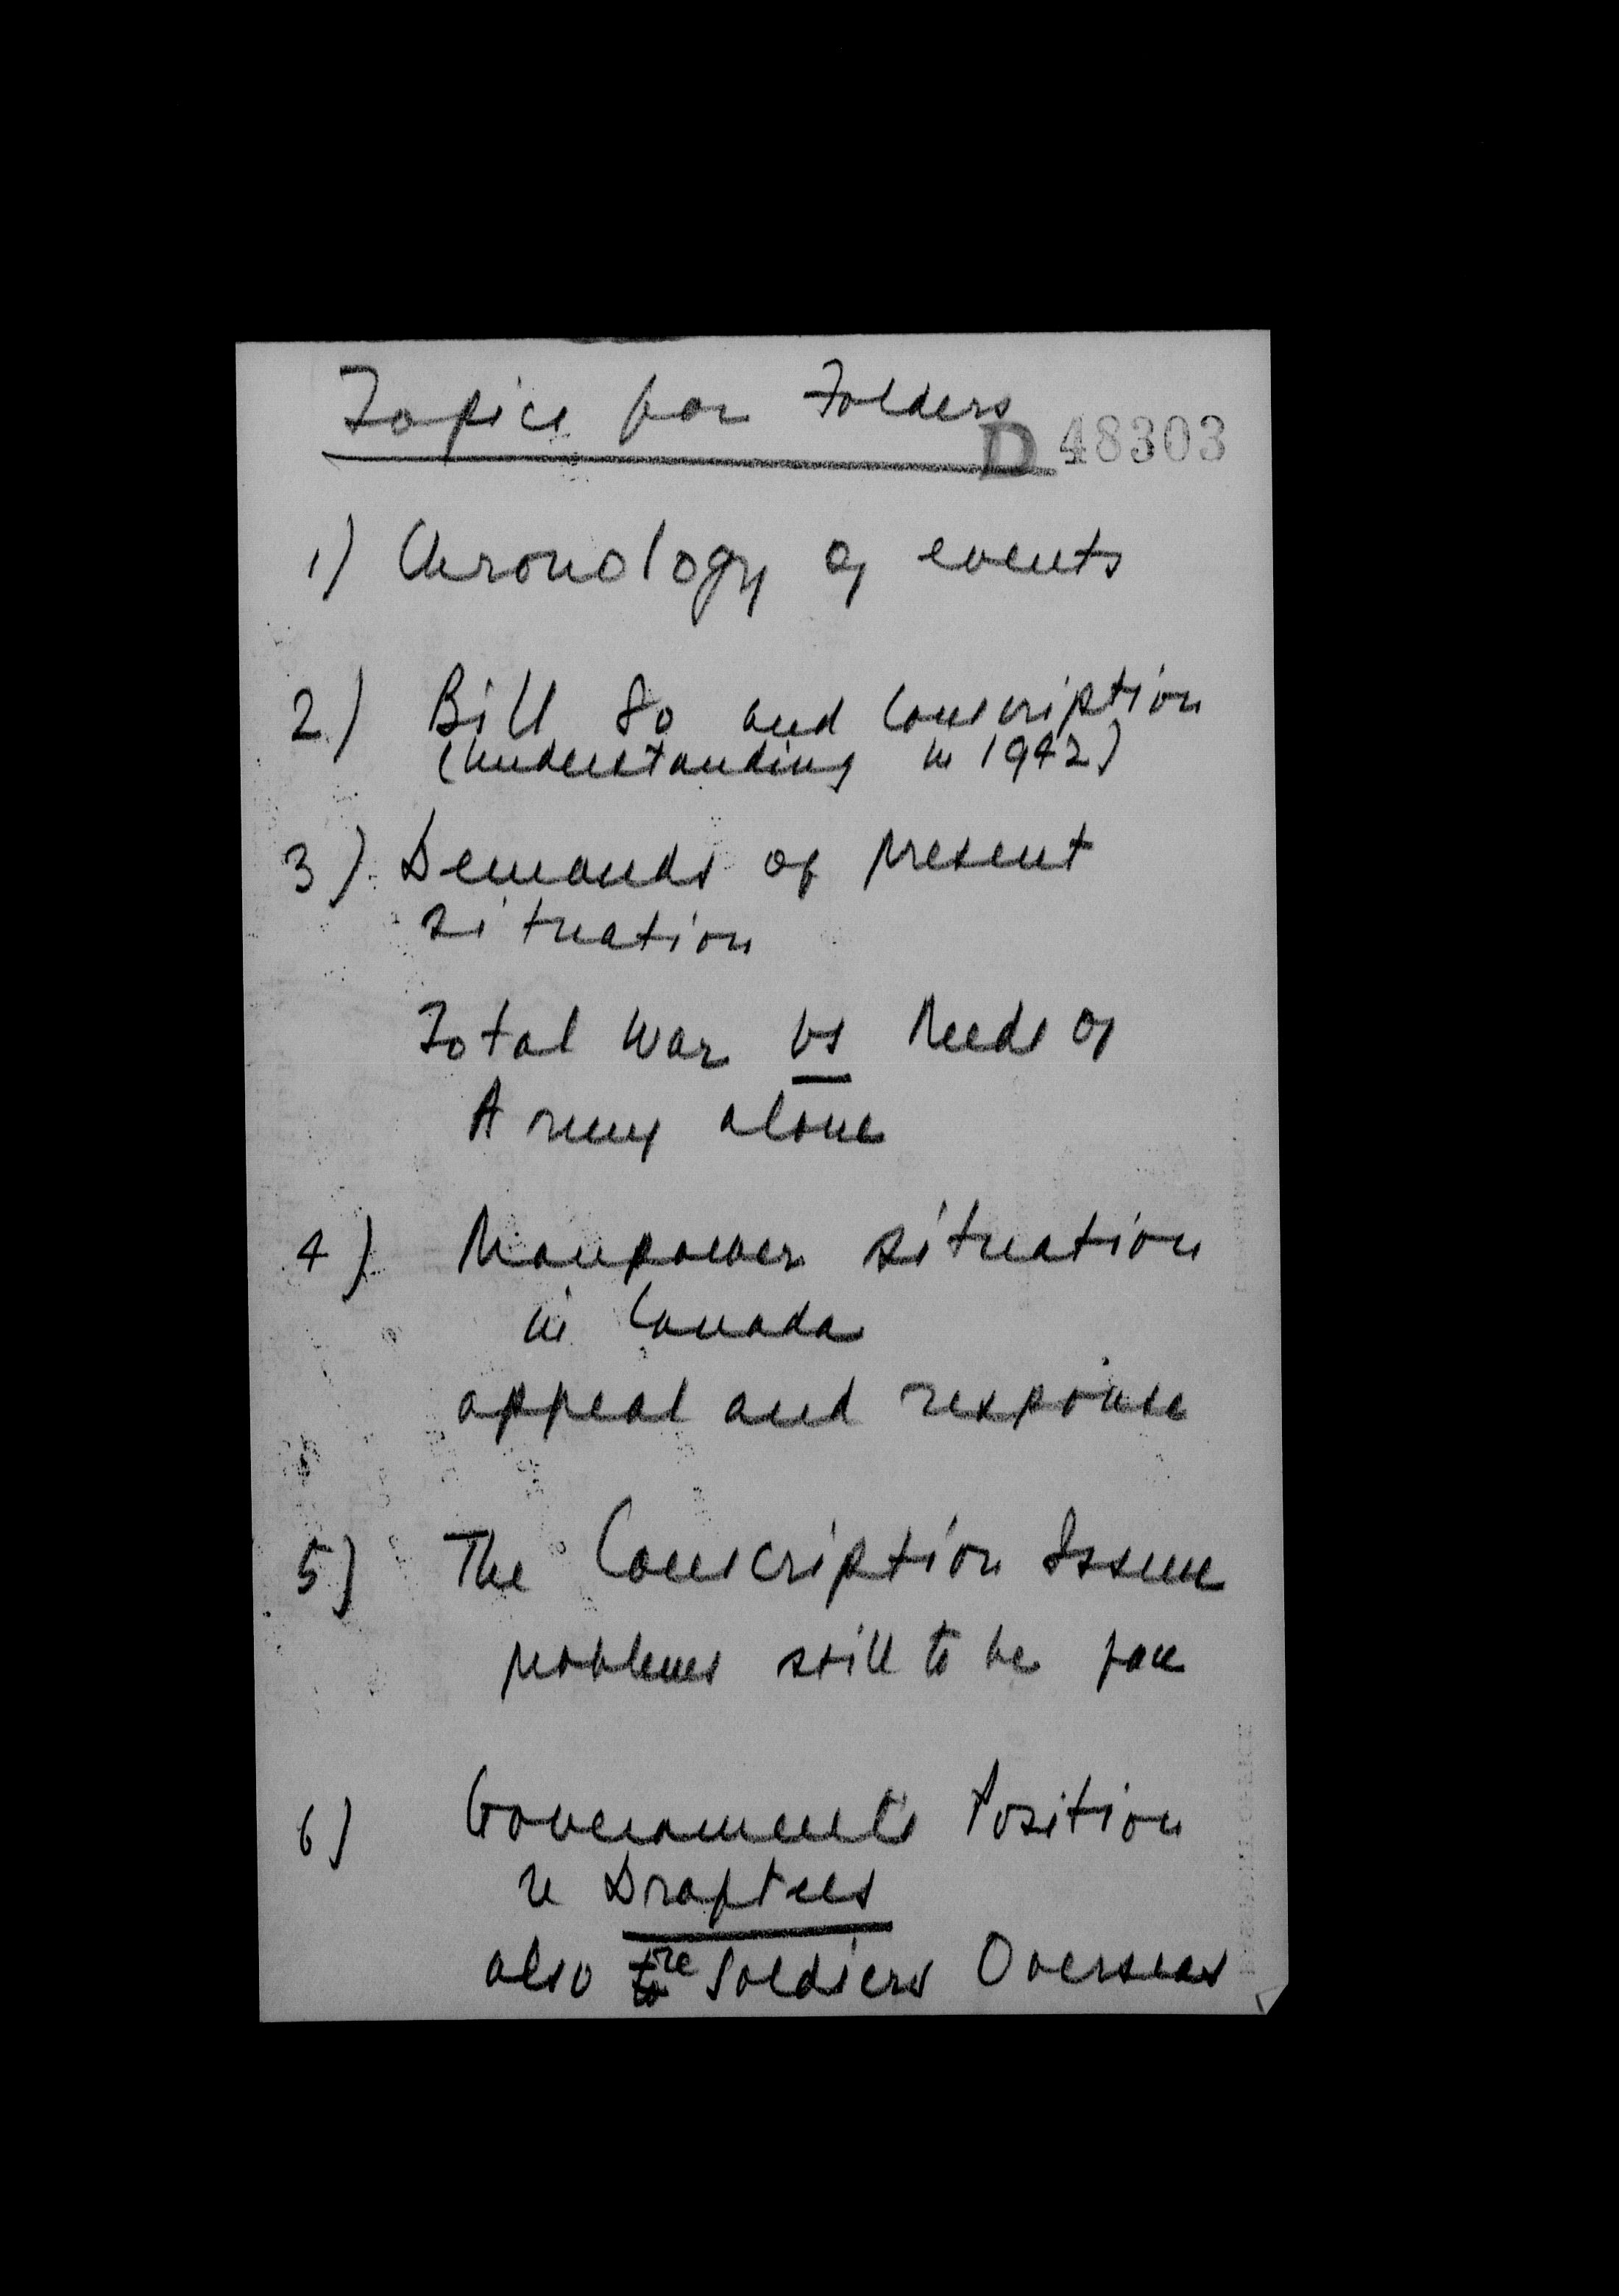 Topics for Folders
D 48303
1) Chronology of events
2) Bill 80 and Conscription
(understanding in 1942)
3) Demands of present
situation
Total War vs Needs of
Army alone
4) Manpower situation
in Canada
appeal and response
5) The Conscription Issue
problems still to be face
6) Governments Position
re Draftees
also re Soldiers Overseas